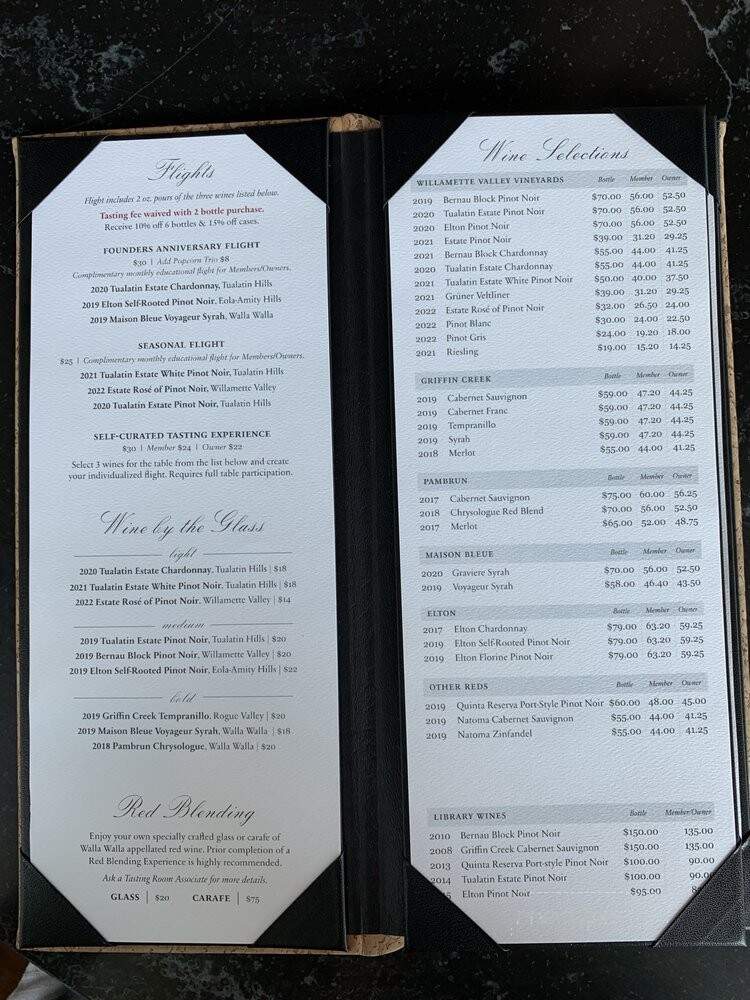 Flights
Flight includes 2 oz. pours of the three wines listed below.
Tasting fee waived with 2 bottle purchase.
Receive 10% off 6 bottles & 15% off cases.
FOUNDERS ANNIVERSARY FLIGHT
$30 | Add Popcorn Trio $8
Complimentary monthly educational flight for Members/Owners.
2020 Tualatin Estate Chardonnay, Tualatin Hills
2019 Elton Self-Rooted Pinot Noir, Eola-Amity Hills
2019 Maison Bleue Voyageur Syrah, Walla Walla
SEASONAL FLIGHT
$25 | Complimentary monthly educational flight for Members/Owners.
2021 Tualatin Estate White Pinot Noir, Tualatin Hills
2022 Estate Rosé of Pinot Noir, Willamette Valley
2020 Tualatin Estate Pinot Noir, Tualatin Hills
SELF-CURATED TASTING EXPERIENCE
$30 | Member $24 | Owner $22
Select 3 wines for the table from the list below and create
your individualized flight. Requires full table participation.
Wine by the Glass
light
2020 Tualatin Estate Chardonnay, Tualatin Hills | $18
2021 Tualatin Estate White Pinot Noir, Tualatin Hills | $18
2022 Estate Rosé of Pinot Noir, Willamette Valley | $14
medium
2019 Tualatin Estate Pinot Noir, Tualatin Hills | $20
2019 Bernau Block Pinot Noir, Willamette Valley | $20
2019 Elton Self-Rooted Pinot Noir, Eola-Amity Hills | $22
bold
2019 Griffin Creek Tempranillo, Rogue Valley | $20
2019 Maison Bleue Voyageur Syrah, Walla Walla | $18
2018 Pambrun Chrysologue, Walla Walla | $20
Red Blending
Enjoy your own specially crafted glass or carafe of
Walla Walla appellated red wine. Prior completion of a
Red Blending Experience is highly recommended.
Ask a Tasting Room Associate for more details.
GLASS | $20 CARAFE | $75
Wine Selections
WILLAMETTE VALLEY VINEYARDS Bottle Member Owner
2019 Bernau Block Pinot Noir $70.00 56.00 52.50
2020 Tualatin Estate Pinot Noir $70.00 56.00 52.50
2020 Elton Pinot Noir $70.00 56.00 52.50
2021 Estate Pinot Noir $39.00 31.20 29.25
2021 Bernau Block Chardonnay $55.00 44.00 41.25
2020 Tualatin Estate Chardonnay $55.00 44.00 41.25
2021 Tualatin Estate White Pinot Noir $50.00 40.00 37.50
2021 Grüner Veltliner $39.00 31.20 29.25
2022 Estate Rosé of Pinot Noir $32.00 26.50 24.00
2022 Pinot Blanc $30.00 24.00 22.50
2022 Pinot Gris $24.00 19.20 18.00
2021 Riesling $19.00 15.20 14.25
GRIFFIN CREEK Bottle Member Owner
2019 Cabernet Sauvignon $59.00 47.20 44.25
2019 Cabernet Franc $59.00 47.20 44.25
2019 Tempranillo $59.00 47.20 44.25
2019 Syrah $59.00 47.20 44.25
2018 Merlot $55.00 44.00 41.25
PAMBRUN Bottle Member Owner
2017 Cabernet Sauvignon $75.00 60.00 56.25
2018 Chrysologue Red Blend $70.00 56.00 52.50
2017 Merlot $65.00 52.00 48.75
MAISON BLEUE Bottle Member Owner
2020 Graviere Syrah $70.00 56.00 52.50
2019 Voyageur Syrah $58.00 46.40 43.50
ELTON Bottle Member Owner
2017 Elton Chardonnay $79.00 63.20 59.25
2019 Elton Self-Rooted Pinot Noir $79.00 63.20 59.25
2019 Elton Florine Pinot Noir $79.00 63.20 59.25
OTHER REDS Bottle Member Owner
2019 Quinta Reserva Port-Style Pinot Noir $60.00 48.00 45.00
2019 Natoma Cabernet Sauvignon $55.00 44.00 41.25
2019 Natoma Zinfandel $55.00 44.00 41.25
LIBRARY WINES Bottle Member/Owner
2010 Bernau Block Pinot Noir $150.00 135.00
2008 Griffin Creek Cabernet Sauvignon $150.00 135.00
2013 Quinta Reserva Port-style Pinot Noir $100.00 90.00
2014 Tualatin Estate Pinot Noir $100.00 90.0
5 Elton Pinot Noir $95.00 8